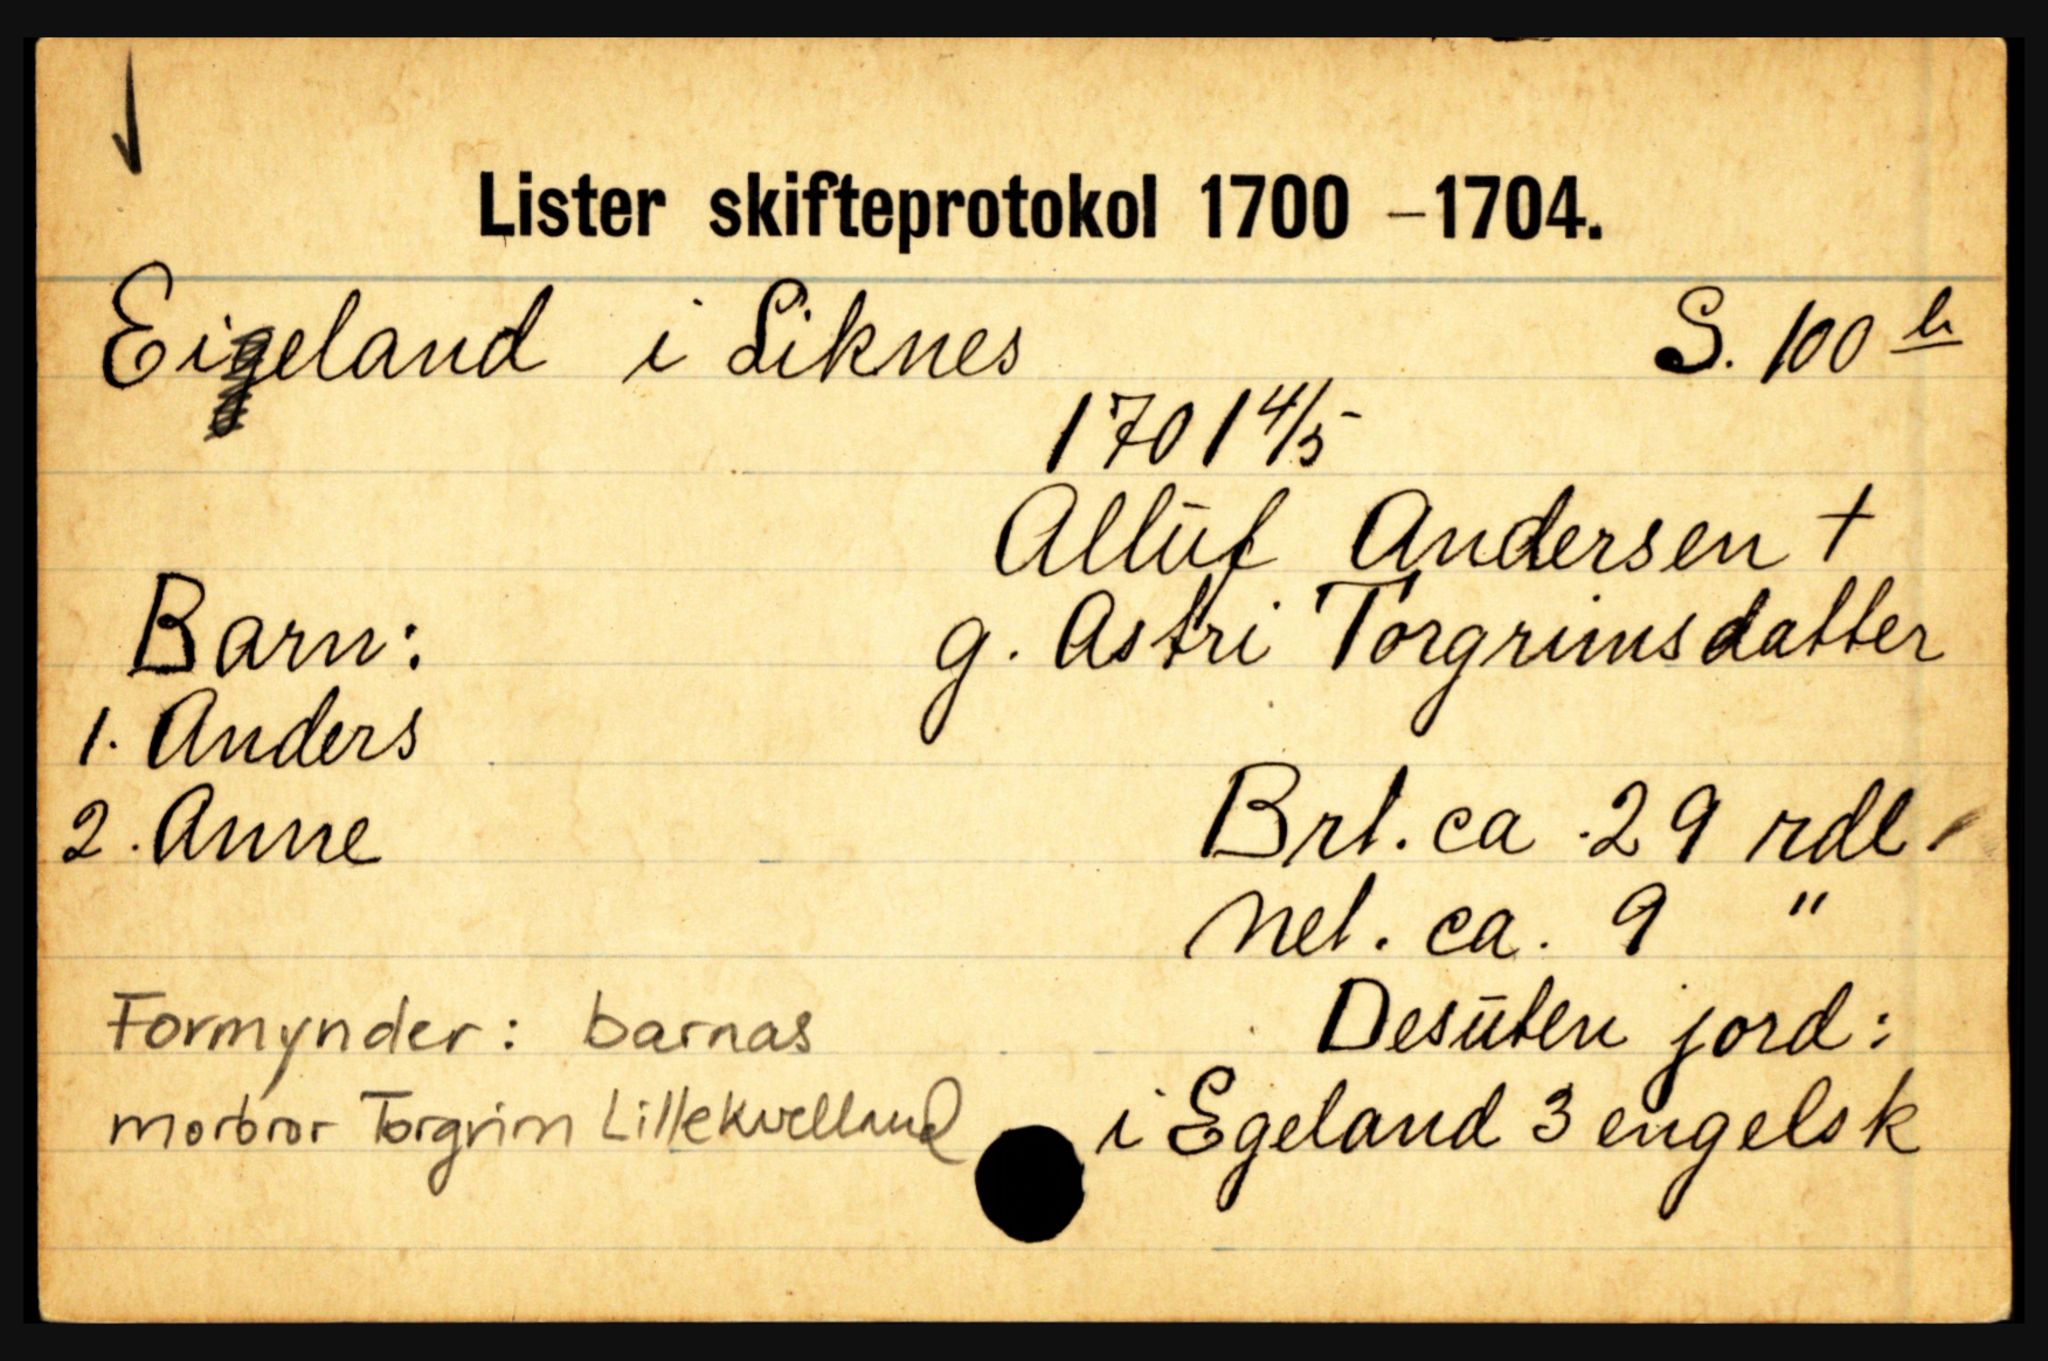 Lister skifteprotokol 1700 –1704.
Eigeland i Liknes S. 100 b
1701 4/5
Allūf Andersen +
Barn: g. Astri Torgrimsdatter
1. Anders
2. Anne Brt. ca. 29 rdl.
Net. ca. 9 "
Formynder: barnas Desūten jord:
morbror Torgrim Lillekvelland i Egeland 3 engelsk